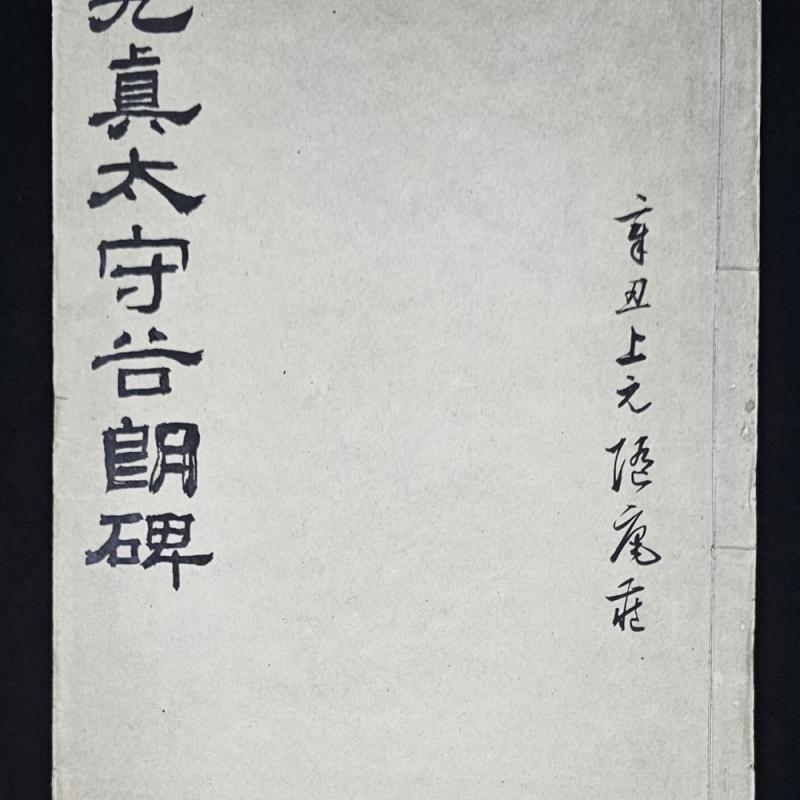 辛丑上元庵
九真太守谷朗碑